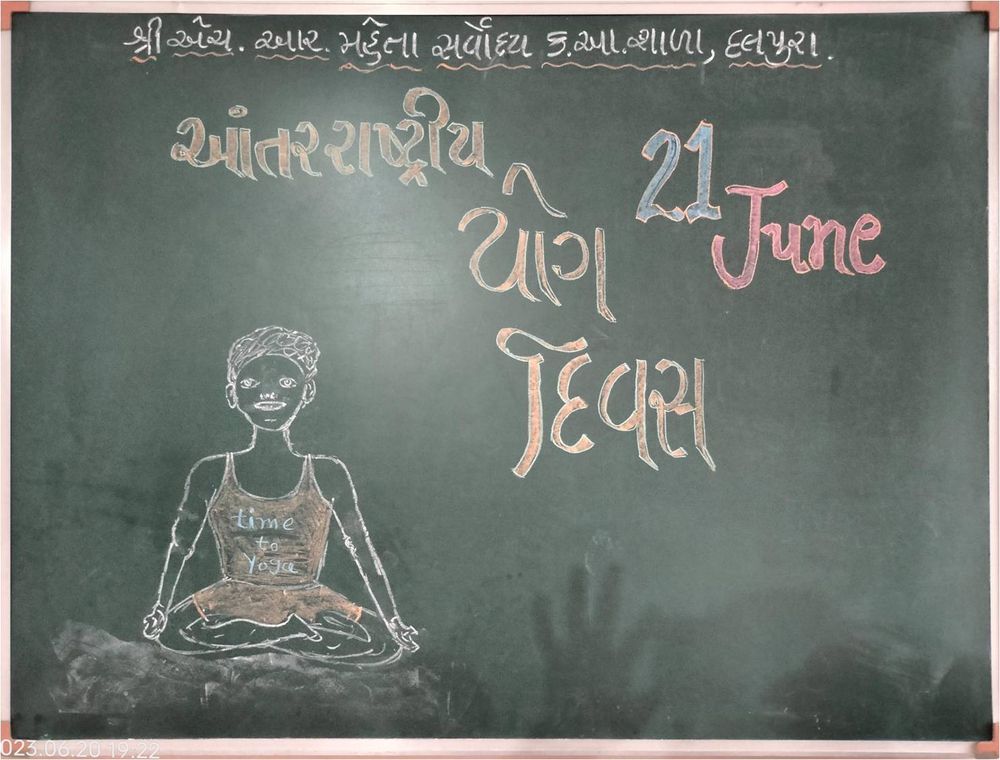 શ્રી એચ. આર. મહેતા સર્વોદય ક.આ.શાળા, દલપુરા.
આંતરરાષ્ટ્રીય
યોગ
દિવસ
21
June
time
to
Yoga
023.06.20 19:22